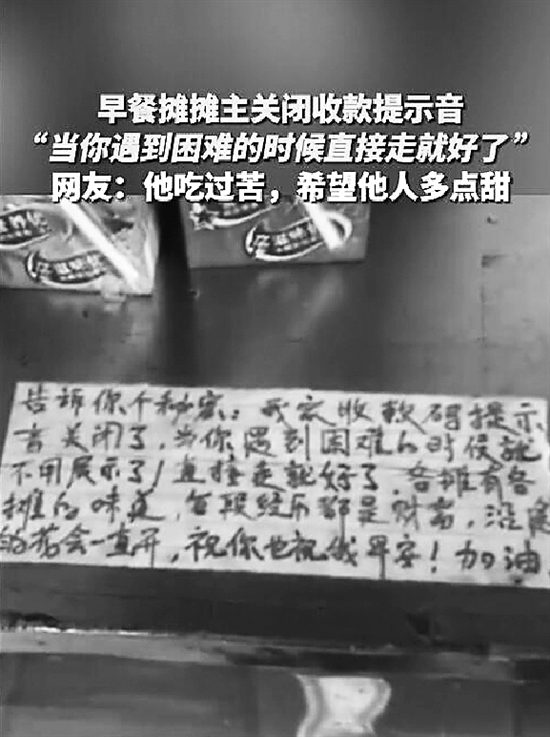 早餐摊摊主关闭收款提示音
“当你遇到困难的时候直接走就好了”
网友：他吃过苦，希望他人多点甜
告诉你个秘密：我家收款码提示
音关闭了，当你遇到困难的时候就
不用展示了！直接走就好了，各摊有各
摊的味道，每段经历都是财富，沿途
的花会一直开，祝你也祝我早安！加油